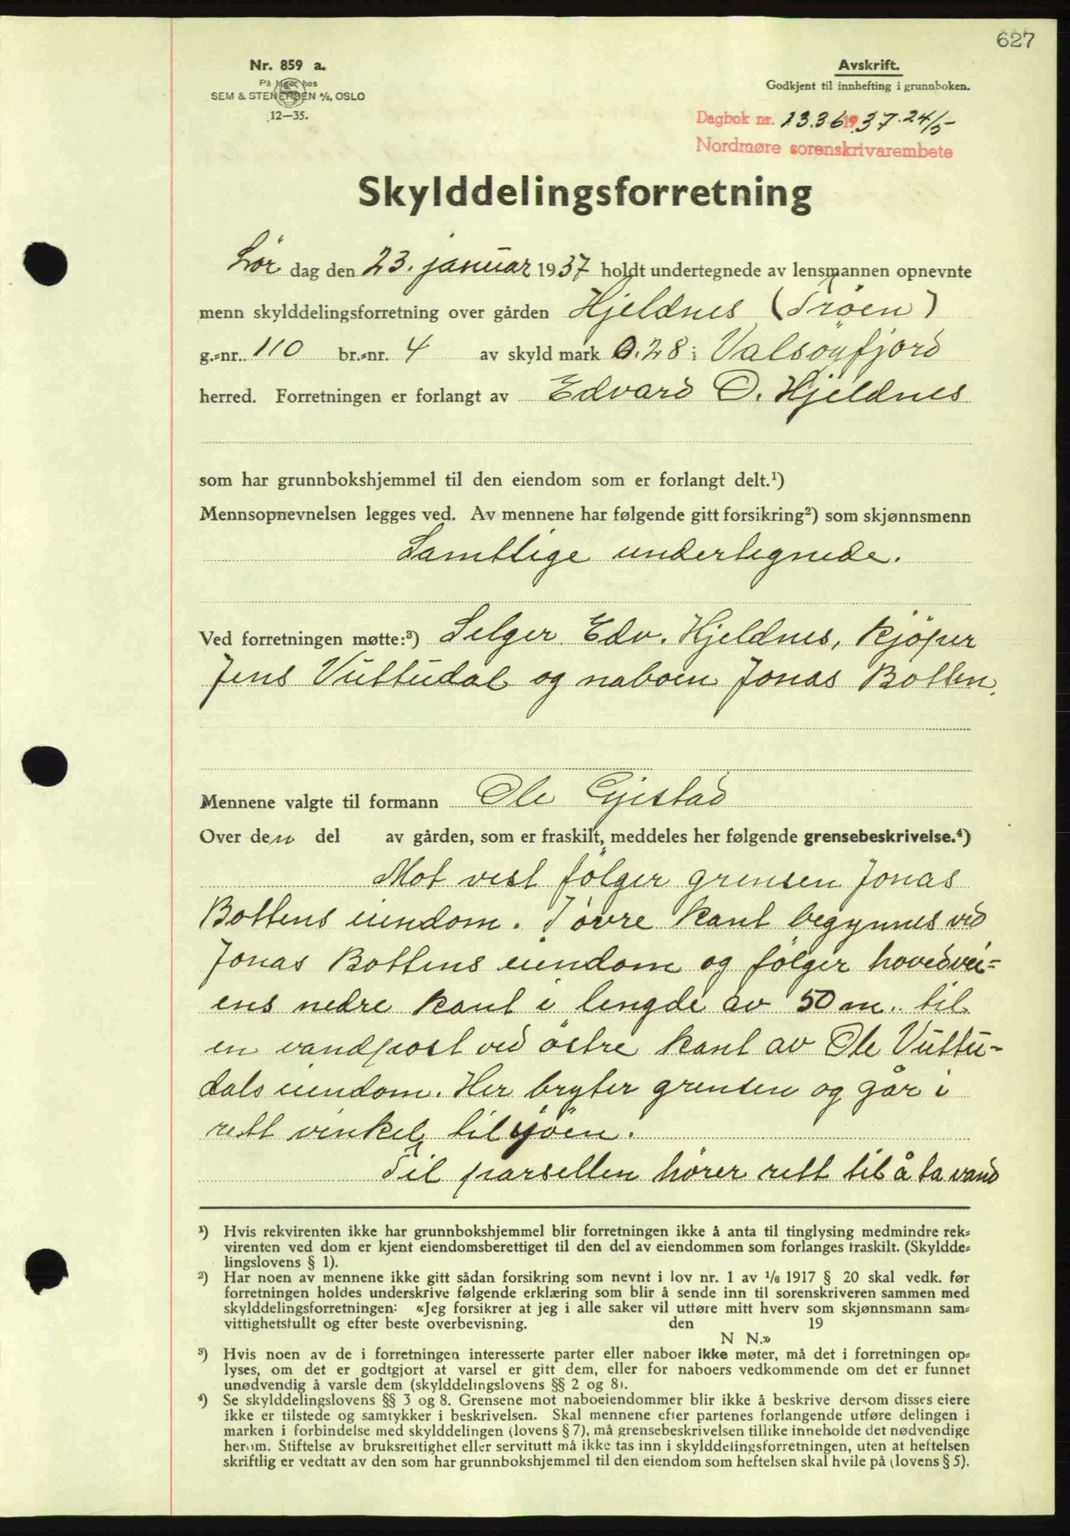 627
Nr. 859 a.
På lager hos
SEM & STENERSEN A/S, OSLO
12—35.
Avskrift.
Godkjent til innhefting i grunnboken.
Dagbok nr. 1336 1937. 24/5
Nordmøre sorenskrivarembete
Skylddelingsforretning
Lør dag den 23. januar 1937 holdt undertegnede av lensmannen opnevnte
menn skylddelingsforretning over gården Hjeldnes (Trøen)
g.-nr. 110 br.-nr. 4 av skyld mark 0.28 i Valsøyfjord
herred. Forretningen er forlangt av Edvard O. Hjeldnes
som har grunnbokshjemmel til den eiendom som er forlangt delt.¹)
Mennsopnevnelsen legges ved. Av mennene har følgende gitt forsikring²) som skjønnsmenn
Samtlige undertegnede.
Ved forretningen møtte:³) Selger Edv. Hjeldnes, kjöper
Jens Vuttudal og naboen Jonas Botten.
Mennene valgte til formann Ole Gjestad
Over den del av gården, som er fraskilt, meddeles her følgende grensebeskrivelse.⁴)
Mot vest följger grensen Jonas
Bottens eiendom. I övre kant begynnes ved
Jonas Bottens eiendom og fölger hovedvei-
ens nedre kant i lengde av 50 m. til
en vandpost ved östre kant av Ole Vuttu-
dals eiendom. Her bryter grensen og går i
rett vinkel til sjöen.
Til parsellen hører rett til å ta vand
¹) Hvis rekvirenten ikke har grunnbokshjemmel blir forretningen ikke å anta til tinglysing medmindre rek-
virenten ved dom er kjent eiendomsberettiget til den del av eiendommen som forlanges fraskilt. (Skyldde-
lingslovens § 1).
²) Har noen av mennene ikke gitt sådan forsikring som nevnt i lov nr. 1 av 1/6 1917 § 20 skal vedk. før
forretningen holdes underskrive følgende erklæring som blir å sende inn til sorenskriveren sammen med
skylddelingsforretningen: «Jeg forsikrer at jeg i alle saker vil utføre mitt hverv som skjønnsmann sam-
vittighetsfullt og efter beste overbevisning. den 19
N N.»
³) Hvis noen av de i forretningen interesserte parter eller naboer ikke møter, må det i forretningen op-
lyses, om det er godtgjort at varsel er gitt dem, eller for naboers vedkommende om det er funnet
unødvendig å varsle dem (skylddelingslovens §§ 2 og 8).
⁴) Se skylddelingslovens §§ 3 og 8. Grensene mot naboeiendommer blir ikke å beskrive dersom disses eiere
ikke er tilstede og samtykker i beskrivelsen. Skal mennene efter partenes forlangende utføre delingen i
marken i forbindelse med skylddelingen (lovens § 7), må grensebeskrivelsen tillike inneholde det nødvendige
herom. Stiftelse av bruksrettighet eller servitutt må ikke tas inn i skylddelingsforretningen, uten at heftelsen
skriftlig er vedtatt av den som har grunnbokshjemmel til den eiendom som heftelsen skal hvile på (lovens § 5).